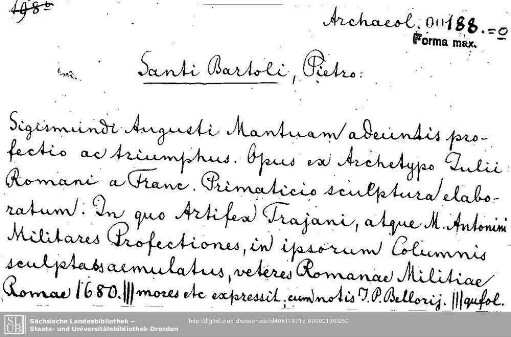 198b
Archaeol. 0188.=0
Forma max.
Santi Bartoli, Pietro:
Sigismundi Augusti Mantuam adeuntis pro-
fectio ac triumphus. Opus ex Archetypo Iulii
Romani a Franc. Primaticio sculptura elabo-
ratum. In quo Artifex Trajani, atque M. Antonini
Militares Profectiones, in ipsorum Columnis
sculptas aemulatus, veteres Romanae Militiae
Romae 1680. ||| mores etc expressit, cum notis J. P. Bellorij. ||| qufol.
Sächsische Landesbibliothek –
Staats- und Universitätsbibliothek Dresden